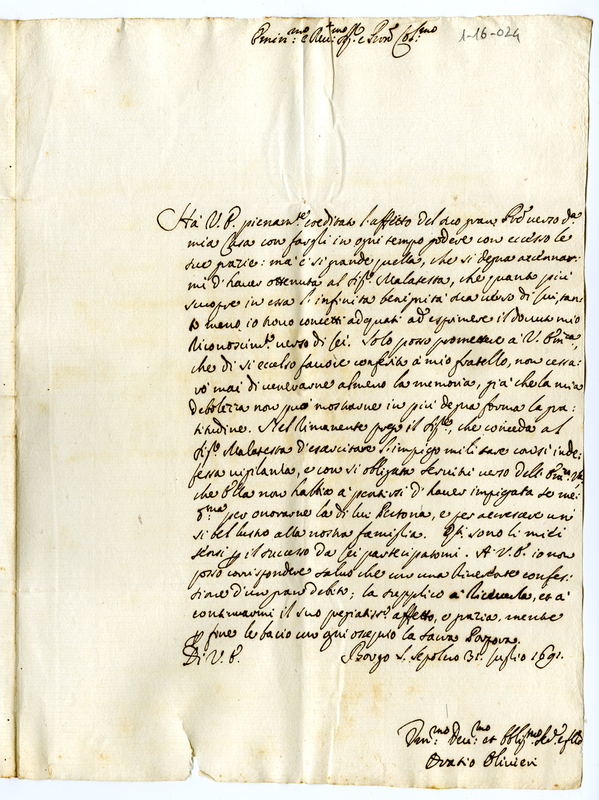 Emin.mo e Rev.mo Sig.e e Pron Col.mo
1-16-024
Hà V. E. pienam.te accreditato l'affetto del suo gran Pred verso d.a
mia Casa con fargli in ogni tempo godere con eccesso le
sue grazie: ma è si grande quella, che si degna accennar-
mi d'haver ottenuta al Sig.r Malatesta, che quanto più
scuopre in essa l'infinita benignità sua verso di lui, tan
to meno io trovo concetti adequati ad esprimere il dovuto mio
riconoscim.to verso di lei. Solo posso promettere à V. Em.za
che di si eccelso favore conferito à mio fratello, non cessa-
rò mai di venerarne almeno la memoria, già che la mia
debolezza non può mostrarne in più degna forma la gra-
titudine. Nel rimanente prego il Sig.re, che conceda al
Sig.r Malatesta d'esercitare l'impiego militare con si inde-
fessa vigilanza, e con si obligata servitù verso dell' Em.za V.ra
che Ella non habbia à pentirsi d'haver impiegata se me-
d.ma per onorarne la di lui Persona, e per accrescere un
si bel lustro alla nostra famiglia. Q.ti sono li miei
sensi p il successo da lei participatomi. A V. E. io non
posso corrispondere salvo che con una riverente confes-
sione d'un gran debito; la supplico à riceverla, et à
continuarmi il suo pregiatiss.o affetto, e grazia, mentre
p fine le bacio con ogni ossequio la Sacra Porpora.
Di V. E. Borgo S. Sepolcro 31. luglio 1691.
Um.mo Dev.mo et Obblig.mo
Oratio Olivieri